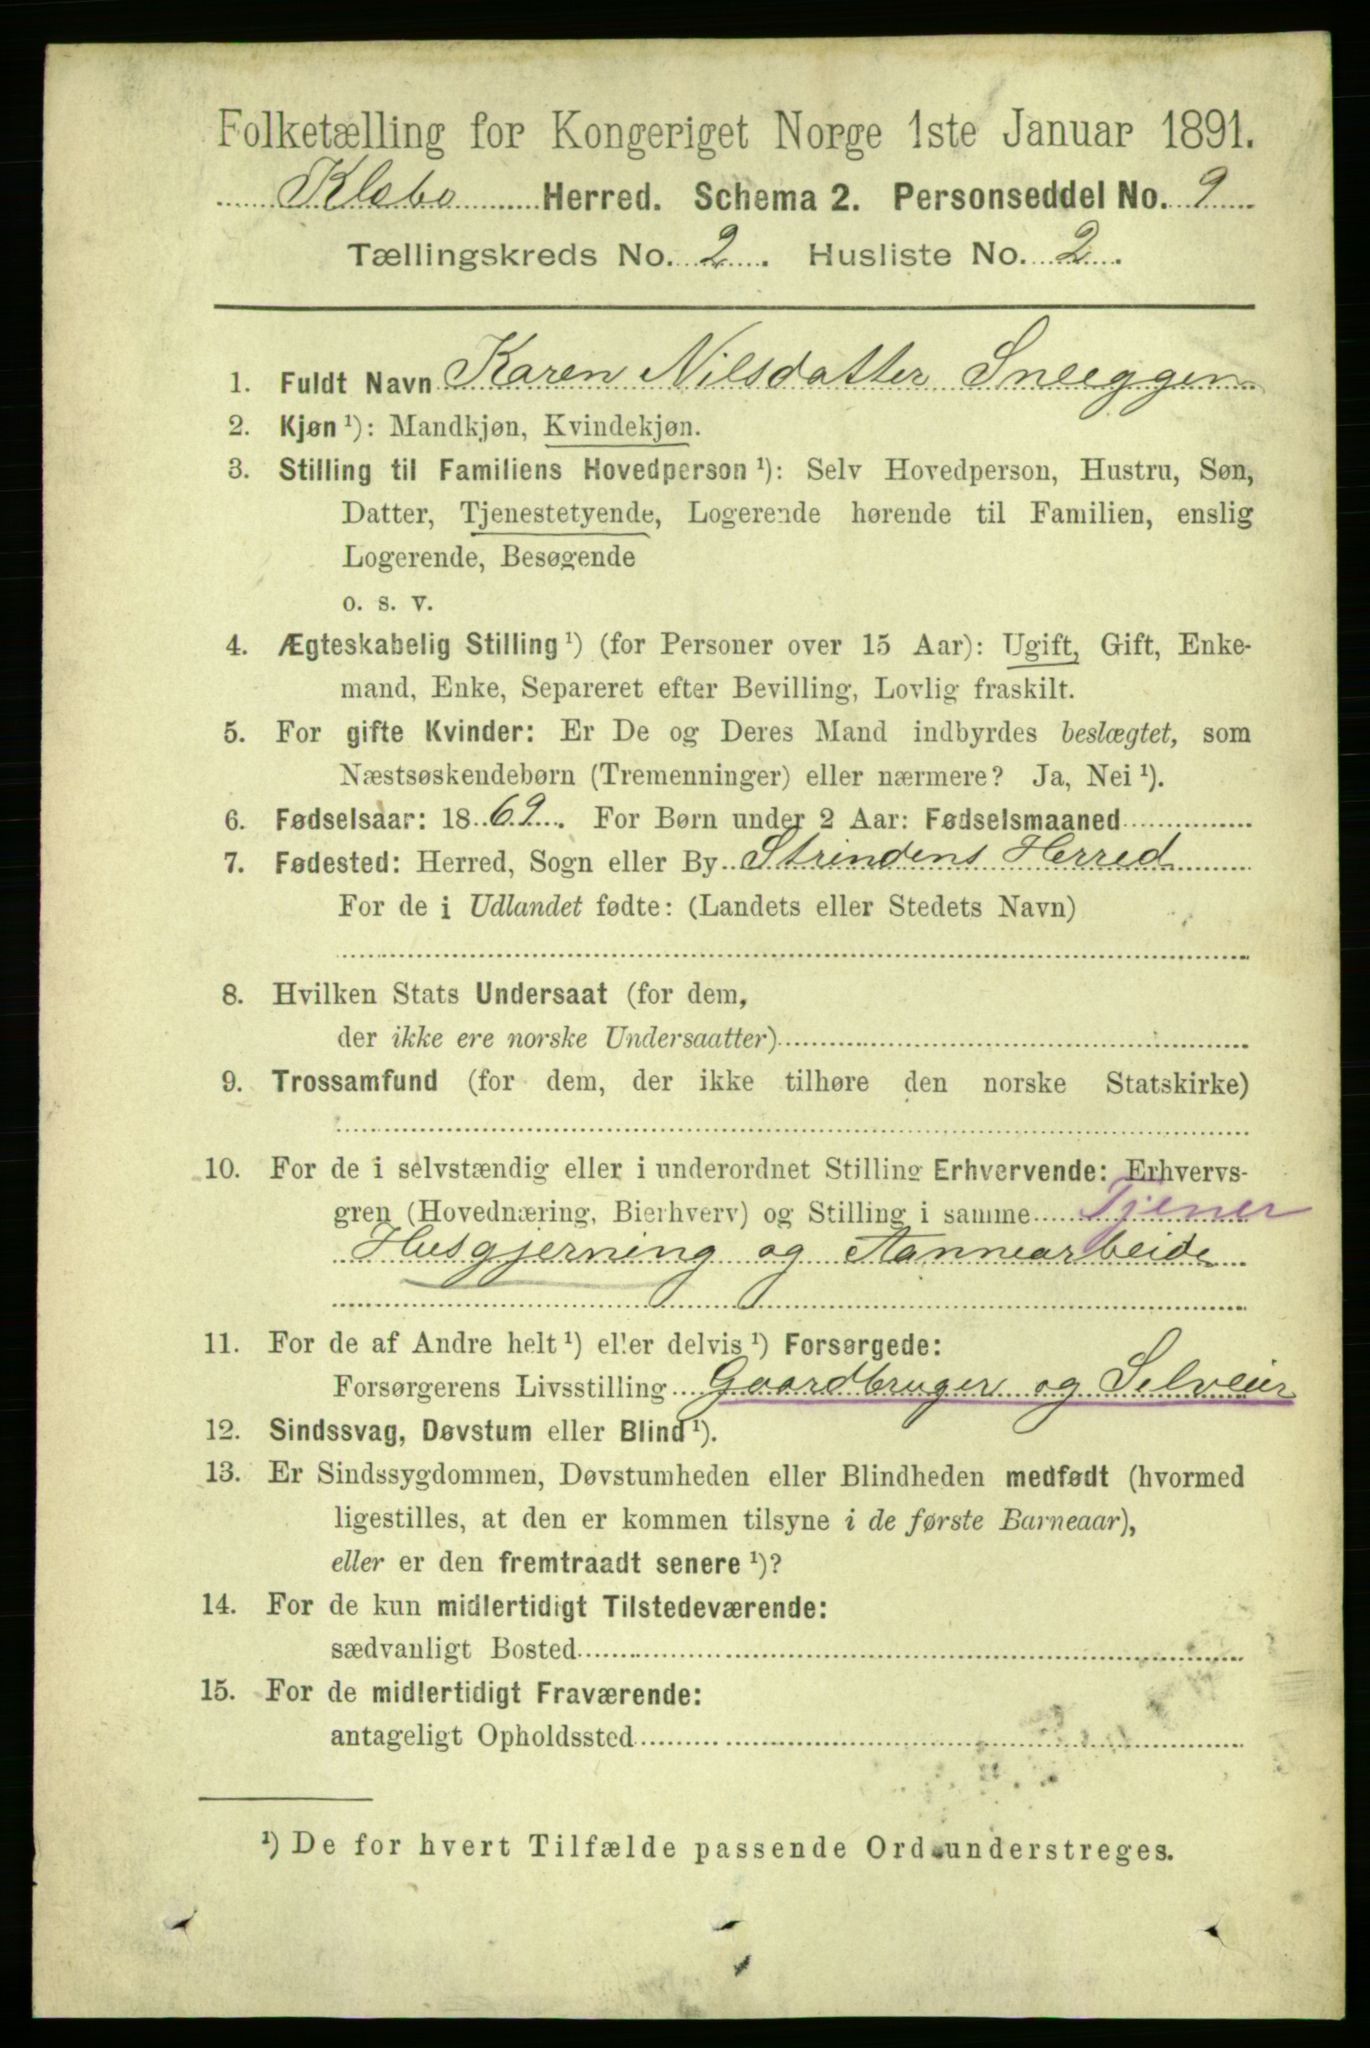 Folketælling for Kongeriget Norge 1ste Januar 1891.
Klæbo Herred. Schema 2. Personseddel No. 9
Tællingskreds No. 2. Husliste No. 2.
1. Fuldt Navn Karen Nilsdatter Sneeggen
2. Kjøn ¹): Mandkjøn, Kvindekjøn.
3. Stilling til Familiens Hovedperson ¹): Selv Hovedperson, Hustru, Søn,
Datter, Tjenestetyende, Logerende hørende til Familien, enslig
Logerende, Besøgende
o. s. v.
4. Ægteskabelig Stilling ¹) (for Personer over 15 Aar): Ugift, Gift, Enke-
mand, Enke, Separeret efter Bevilling, Lovlig fraskilt.
5. For gifte Kvinder: Er De og Deres Mand indbyrdes beslægtet, som
Næstsøskendebørn (Tremenninger) eller nærmere? Ja, Nei ¹).
6. Fødselsaar: 1869. For Børn under 2 Aar: Fødselsmaaned
7. Fødested: Herred, Sogn eller By Strindens Herred
For de i Udlandet fødte: (Landets eller Stedets Navn)
8. Hvilken Stats Undersaat (for dem,
der ikke ere norske Undersaatter)
9. Trossamfund (for dem, der ikke tilhøre den norske Statskirke)
10. For de i selvstændig eller i underordnet Stilling Erhvervende: Erhvervs-
gren (Hovednæring, Bierhverv) og Stilling i samme Tjener
Husgjerning og Aannearbeide
11. For de af Andre helt ¹) eller delvis ¹) Forsørgede:
Forsørgerens Livsstilling Gaardbruger og Selveier
12. Sindssvag, Døvstum eller Blind ¹).
13. Er Sindssygdommen, Døvstumheden eller Blindheden medfødt (hvormed
ligestilles, at den er kommen tilsyne i de første Barneaar),
eller er den fremtraadt senere ¹)?
14. For de kun midlertidigt Tilstedeværende:
sædvanligt Bosted
15. For de midlertidigt Fraværende:
antageligt Opholdssted
¹) De for hvert Tilfælde passende Ord understreges.